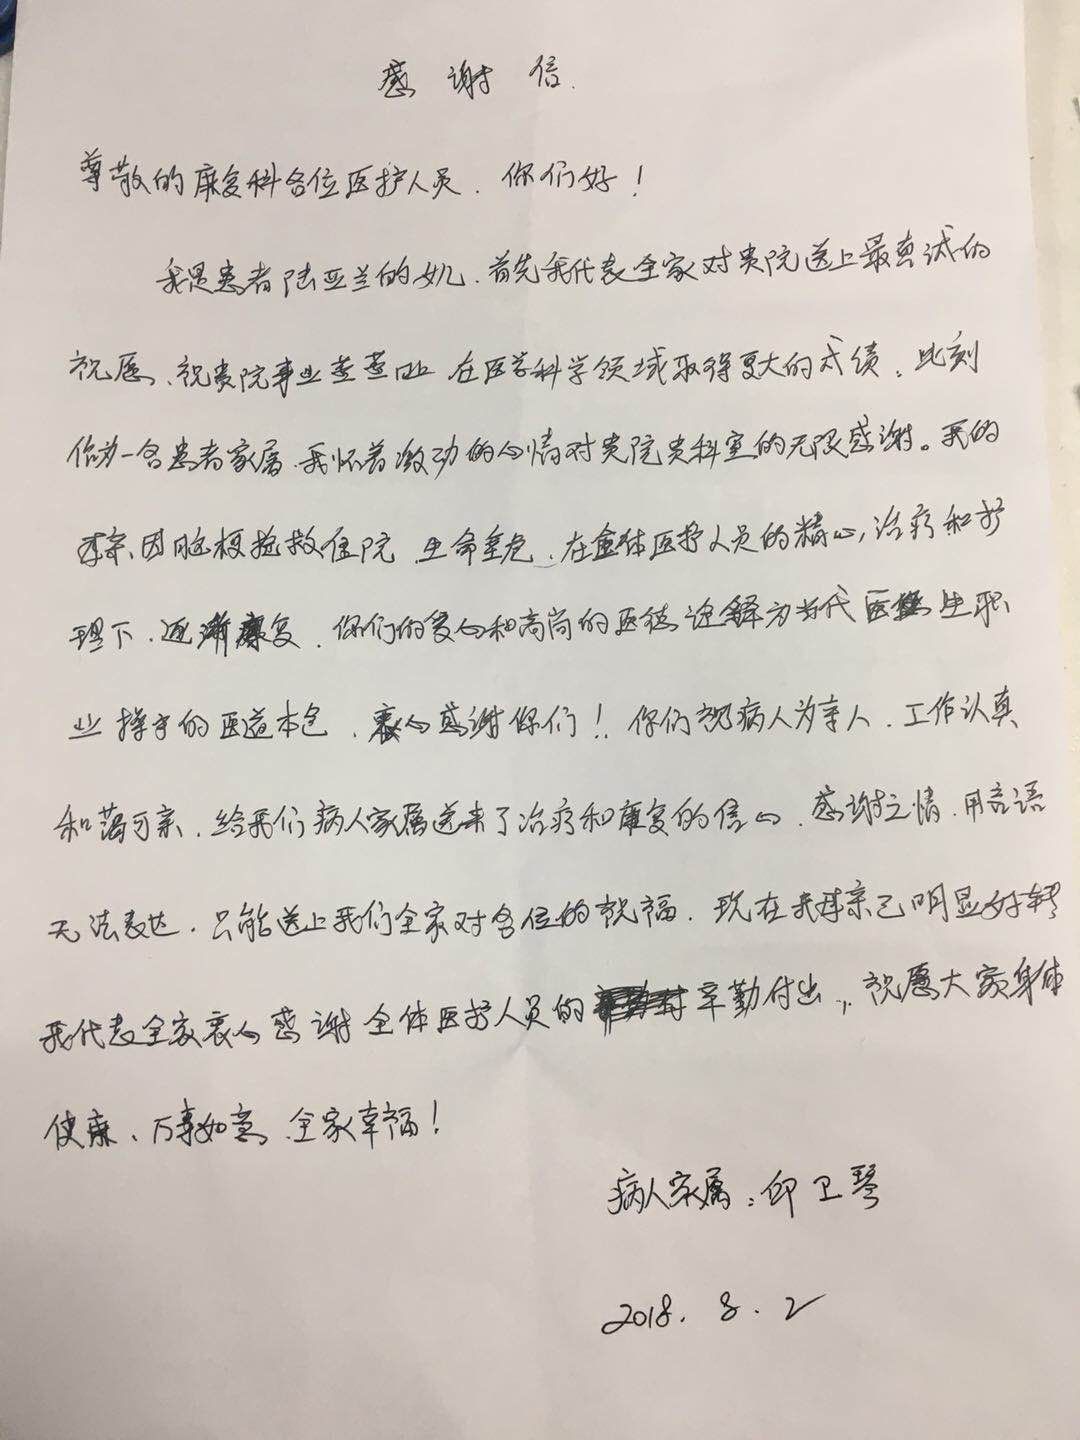 感谢信.
尊敬的康复科各位医护人员、你们好！
我是患者陆亚兰的女儿、首先我代表全家对贵院送上最真诚的
祝愿、祝贵院事业蒸蒸日上 在医学科学领域取得更大的成绩，此刻
作为一名患者家属、我怀着激动的心情对贵院贵科室的无限感谢。我的
母亲、因脑梗抢救住院 生命垂危、在全体医护人员的精心治疗和护
理下、逐渐康复、你们的爱心和高尚的医德诠释为当代医生职
业操守的医道本色、衷心感谢你们！你们视病人为亲人、工作认真
和蔼可亲、给我们病人家属送来了治疗和康复的信心、感谢之情、用言语
无法表达、只能送上我们全家对各位的祝福、现在我母亲已明显好转
我代表全家衷心感谢全体医护人员的辛勤付出，祝愿大家身体
健康、万事如意、全家幸福！
病人家属：邱卫琴
2018.8.2